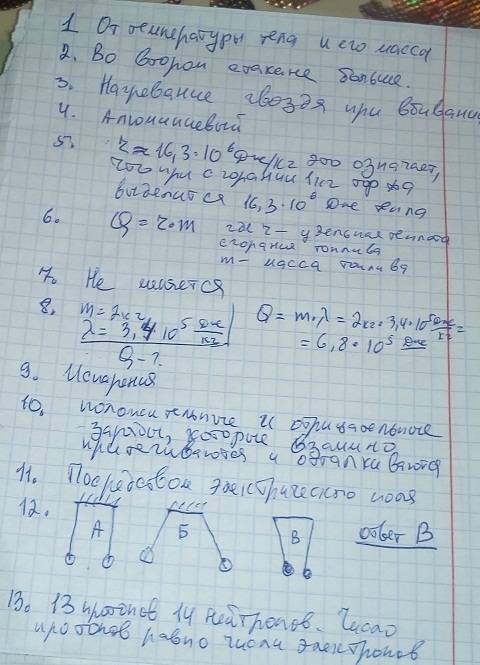 1 От температуры тела и его масса
2. Во втором стакане больше.
3. Нагревание гвоздя при вбивании
4. Алюминиевый
5. r = 16,3·10⁶ Дж/кг это означает,
что при сгорании 1 кг торфа
выделится 16,3·10⁶ Дж тепла
6. Q = r·m где r – удельная теплота
сгорания топлива
m – масса топлива
7. Не меняется
8. m = 2кг Q = m·λ = 2кг·3,4·10⁵ Дж/кг =
λ = 3,4·10⁵ Дж/кг = 6,8·10⁵ Дж
Q – ?
9. Испарения
10. положительные и отрицательные
заряды, которые взаимно
притягиваются и отталкиваются
11. Посредством электрического поля
12. А Б В ответ В
13. 13 протонов 14 нейтронов. Число
протонов равно числу электронов